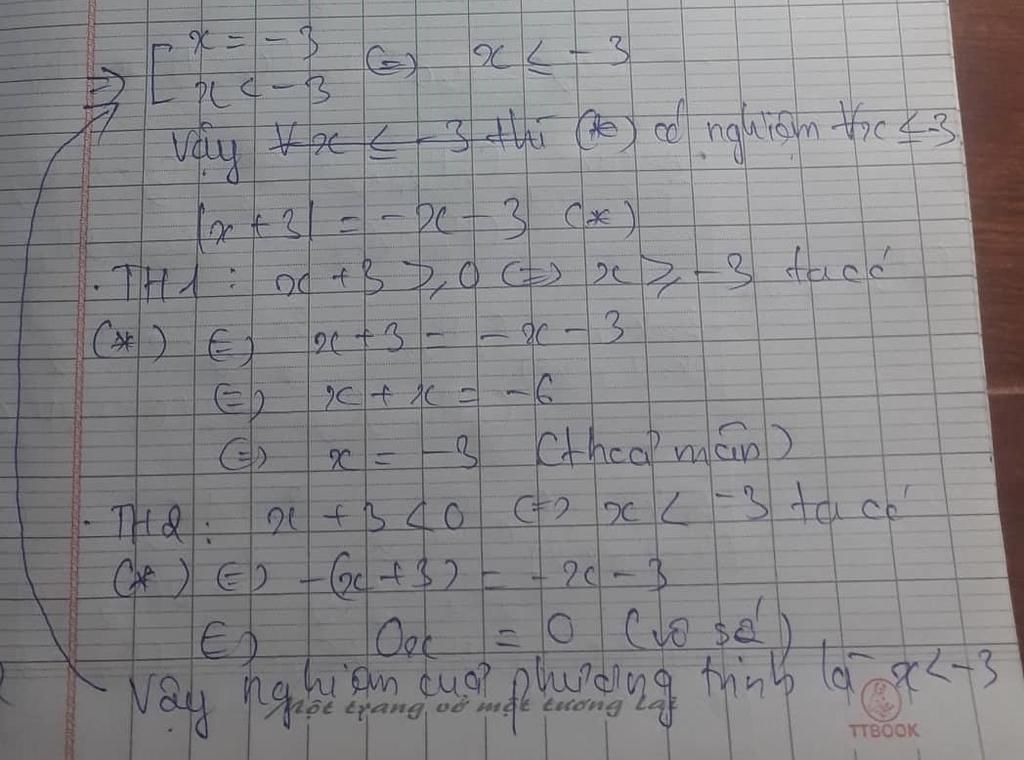 ⇒ [ x = -3
x < -3 ⇔ x ≤ -3
Vậy ∀x ≤ -3 thì (*) có nghiệm ∀x ≤ -3
|x + 3| = -x - 3 (*)
· TH1 : x + 3 ≥ 0 ⇔ x ≥ -3 ta có
(*) ⇔ x + 3 = -x - 3
⇔ x + x = -6
⇔ x = -3 (thoả mãn)
· TH2 : x + 3 < 0 ⇔ x < -3 ta có
(*) ⇔ -(x + 3) = -x - 3
⇔ 0x = 0 (vô số)
Vậy nghiệm của phương trình là x < -3
Một trang vở một tương lai
TTBOOK